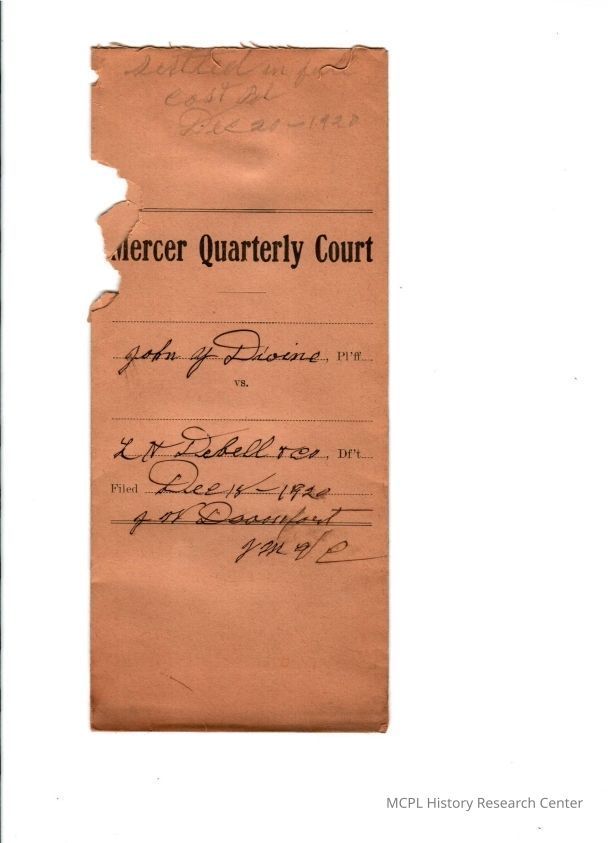 Settled in full
cost pd
Dec 20-1920
Mercer Quarterly Court
John Y Divine, Pl'ff
vs.
L H Debell & Co, Df't
Filed Dec 18-1920
J W Davenport
MCPL History Research Center